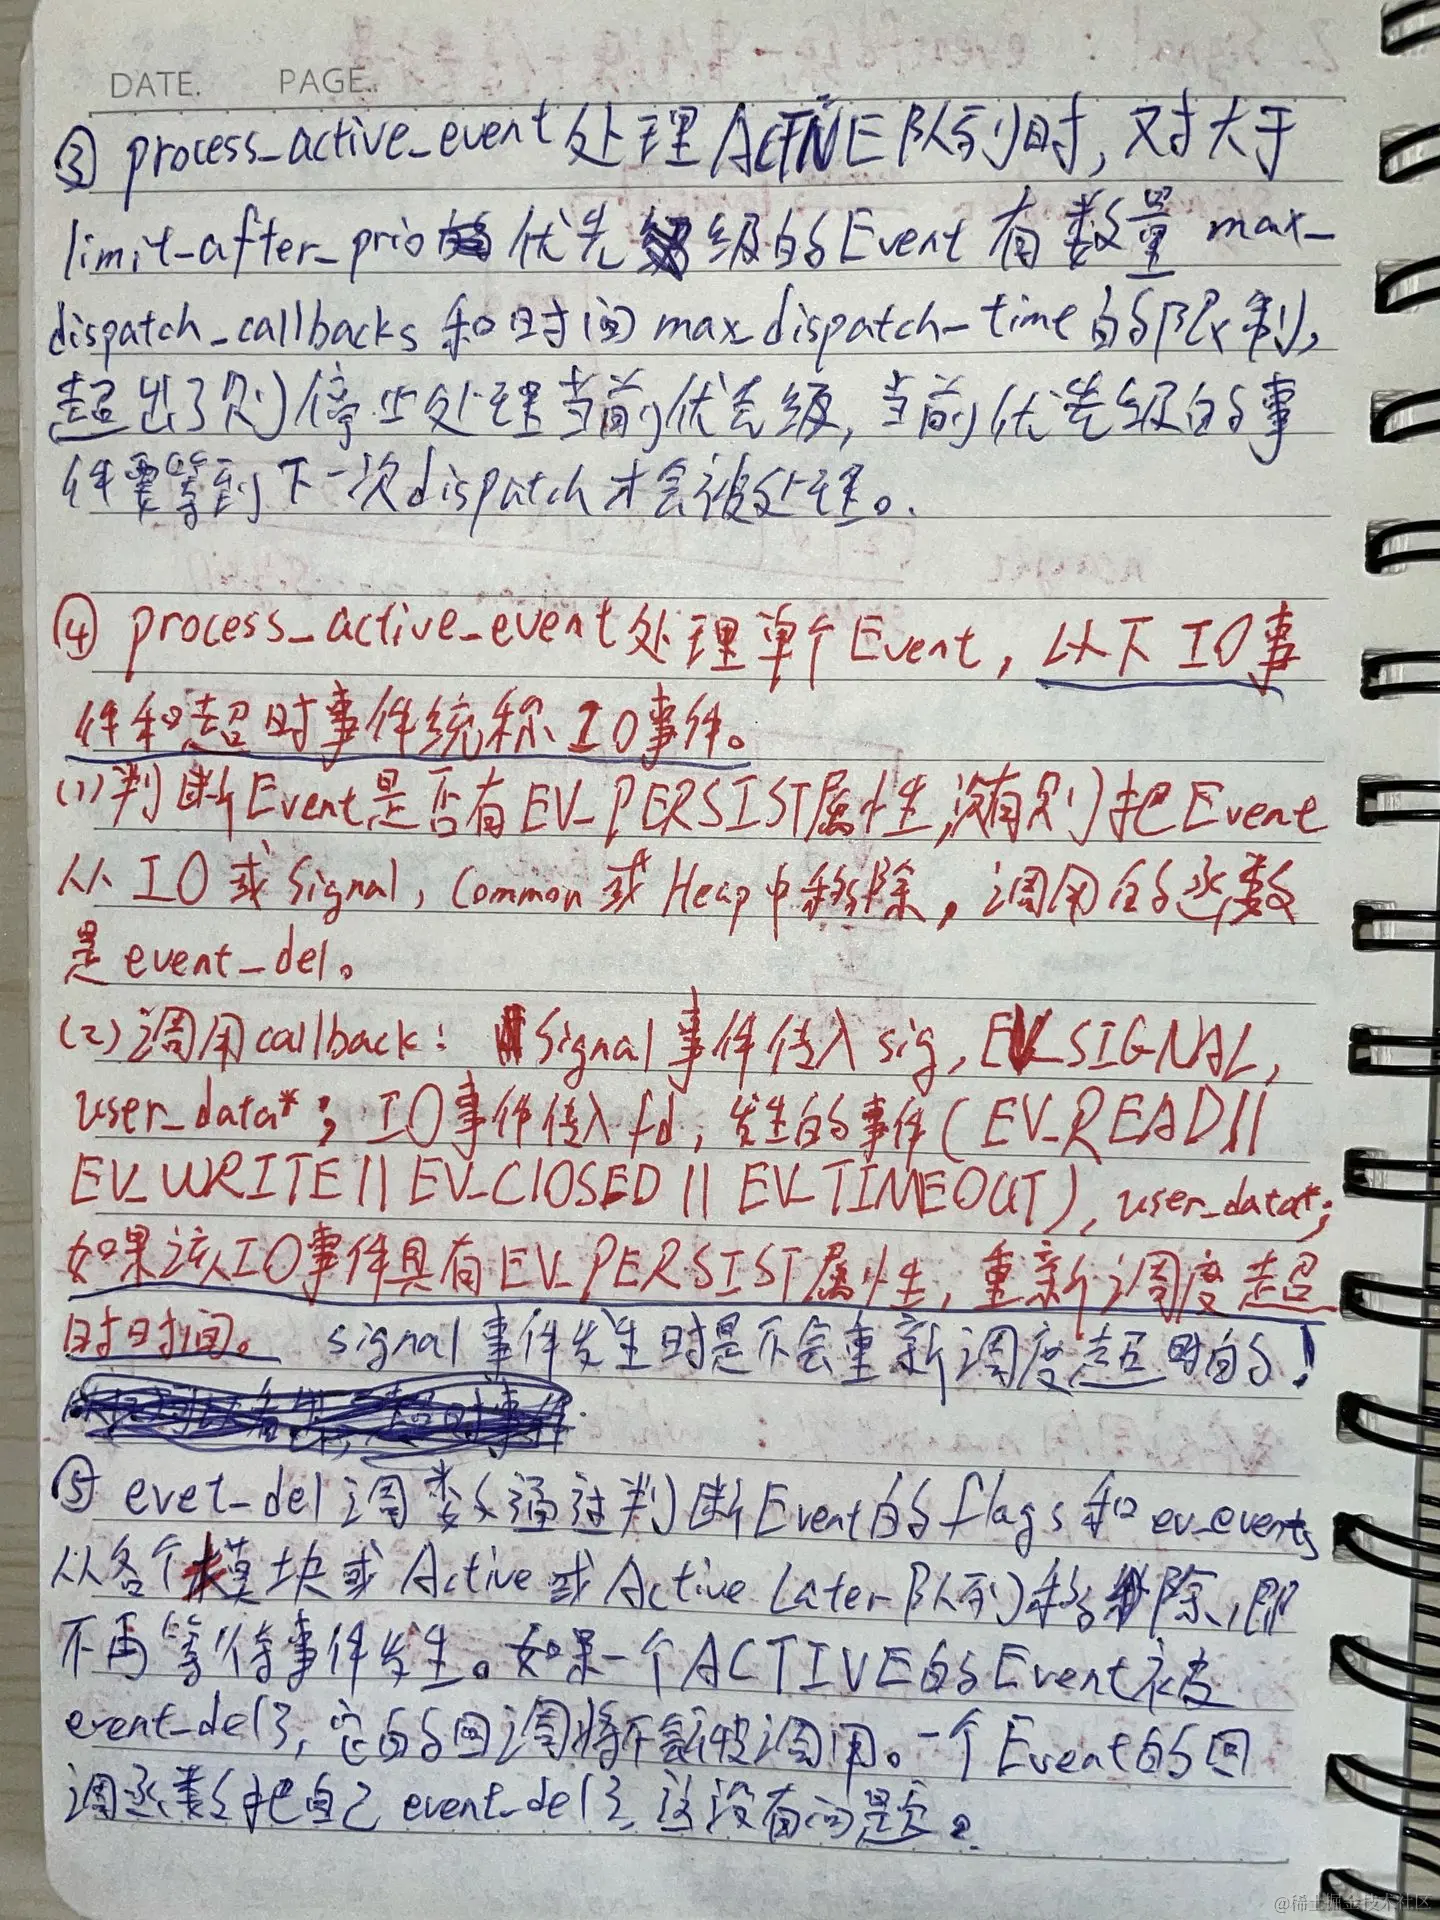 DATE. PAGE.
③ process_active_event处理ACTIVE队列时,对大于
limit_after_prio优先级的Event有数量max_
dispatch_callbacks和时间max_dispatch_time的限制,
超出了则停止处理当前优先级,当前优先级的事
件要等到下一次dispatch才会被处理。
④ process_active_event处理单个Event,以下IO事
件和超时事件统称IO事件。
(1)判断Event是否有EV_PERSIST属性,没有则把Event
从IO或Signal,Common或Heap中移除,调用的函数
是event_del。
(2)调用callback: Signal事件传入sig,EV_SIGNAL,
user_data*;IO事件传入fd,发生的事件(EV_READ||
EV_WRITE||EV_ClOSED||EV_TIMEOUT),user_data*;
如果该IO事件具有EV_PERSIST属性,重新调度超
时时间。 signal事件发生时是不会重新调度超时的!
⑤ evet_del调数通过判断Event的flags和ev_events
从各个模块或Active或Active Later队列移除,即
不再等待事件发生。如果一个ACTIVE的Event被
event_del了,它的回调将不会被调用。一个Event的回
调函数把自己event_del了,这没有问题。
@稀土掘金技术社区